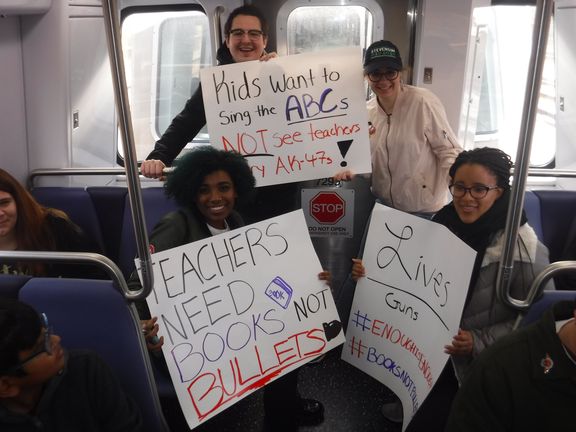 STEVENSON
Kids Want to
Sing the ABCs
NOT see teachers
AK-47s!
7293
STOP
DO NOT OPEN
TEACHERS
NEED
BOOK
BOOKS NOT
BULLETS
Lives
Guns
#ENOUGHISENOUGH
#BOOKSNOTBULLETS